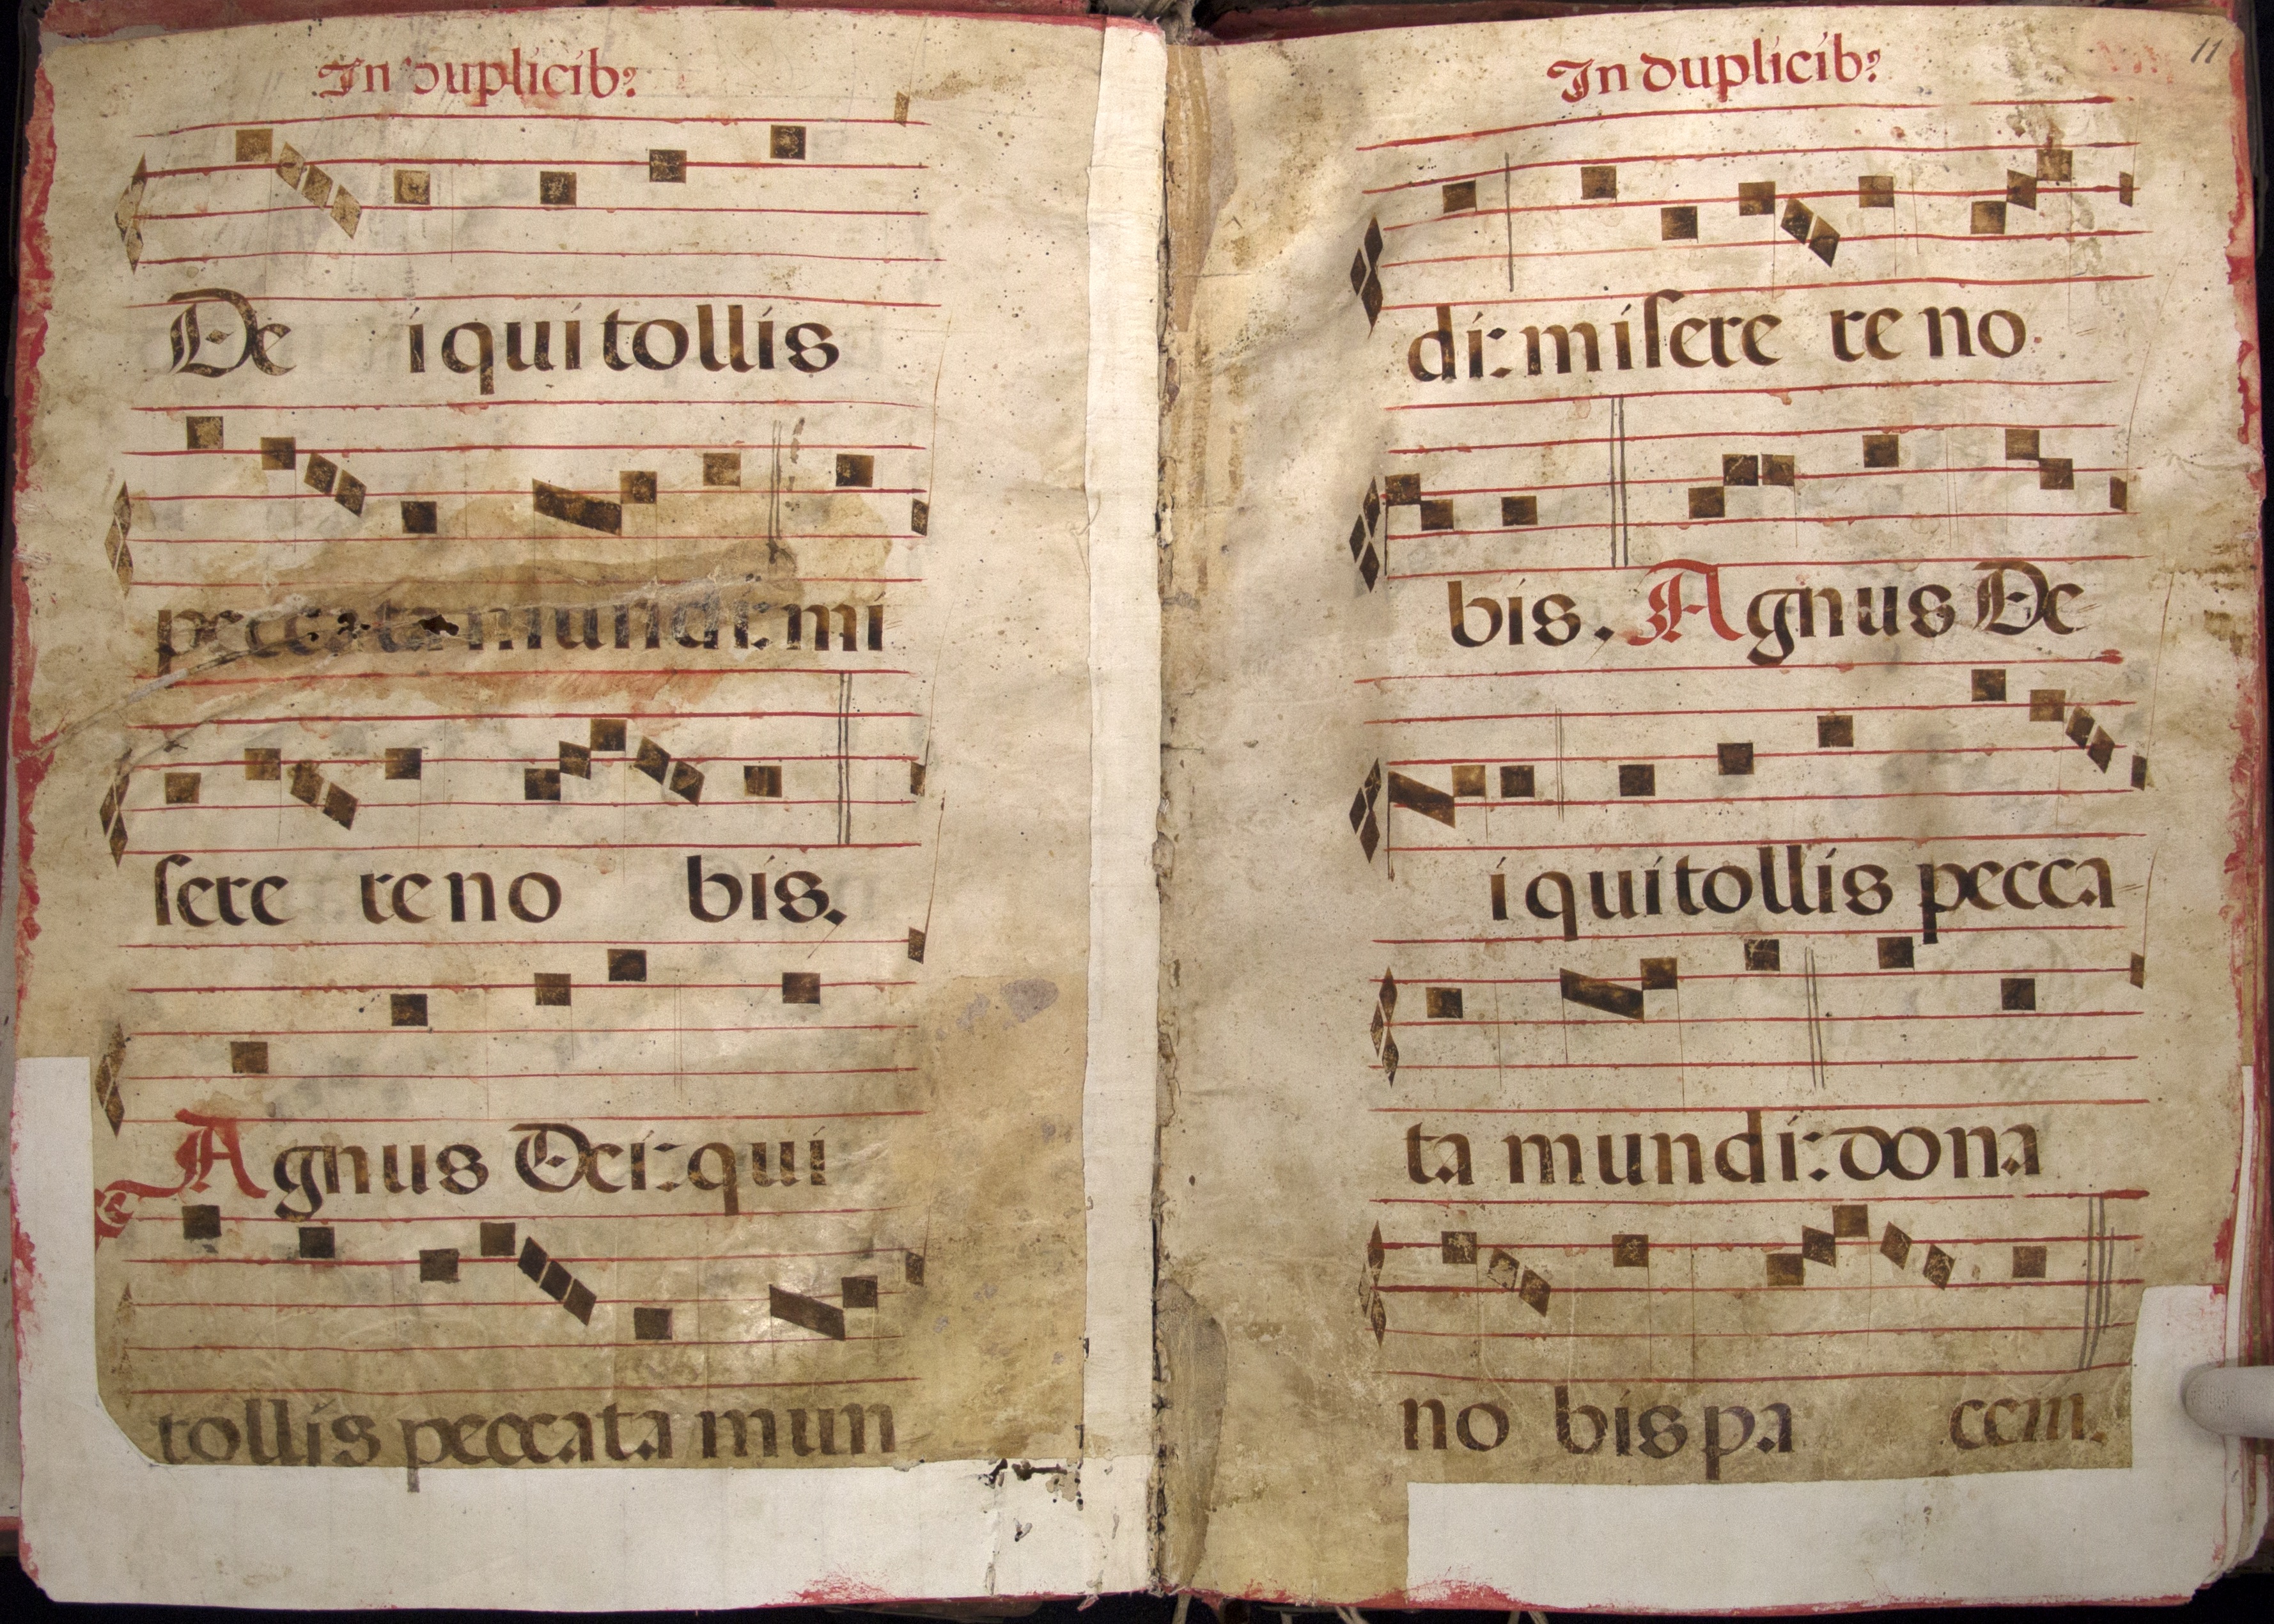 In duplicib⁹
De i qui tollis
peccata mundi: mi
sere re no bis.
Agnus Dei: qui
tollis peccata mun
11
In duplicib⁹
di: misere re no
bis. Agnus De
i qui tollis pecca
ta mundi: dona
no bis pa cem.